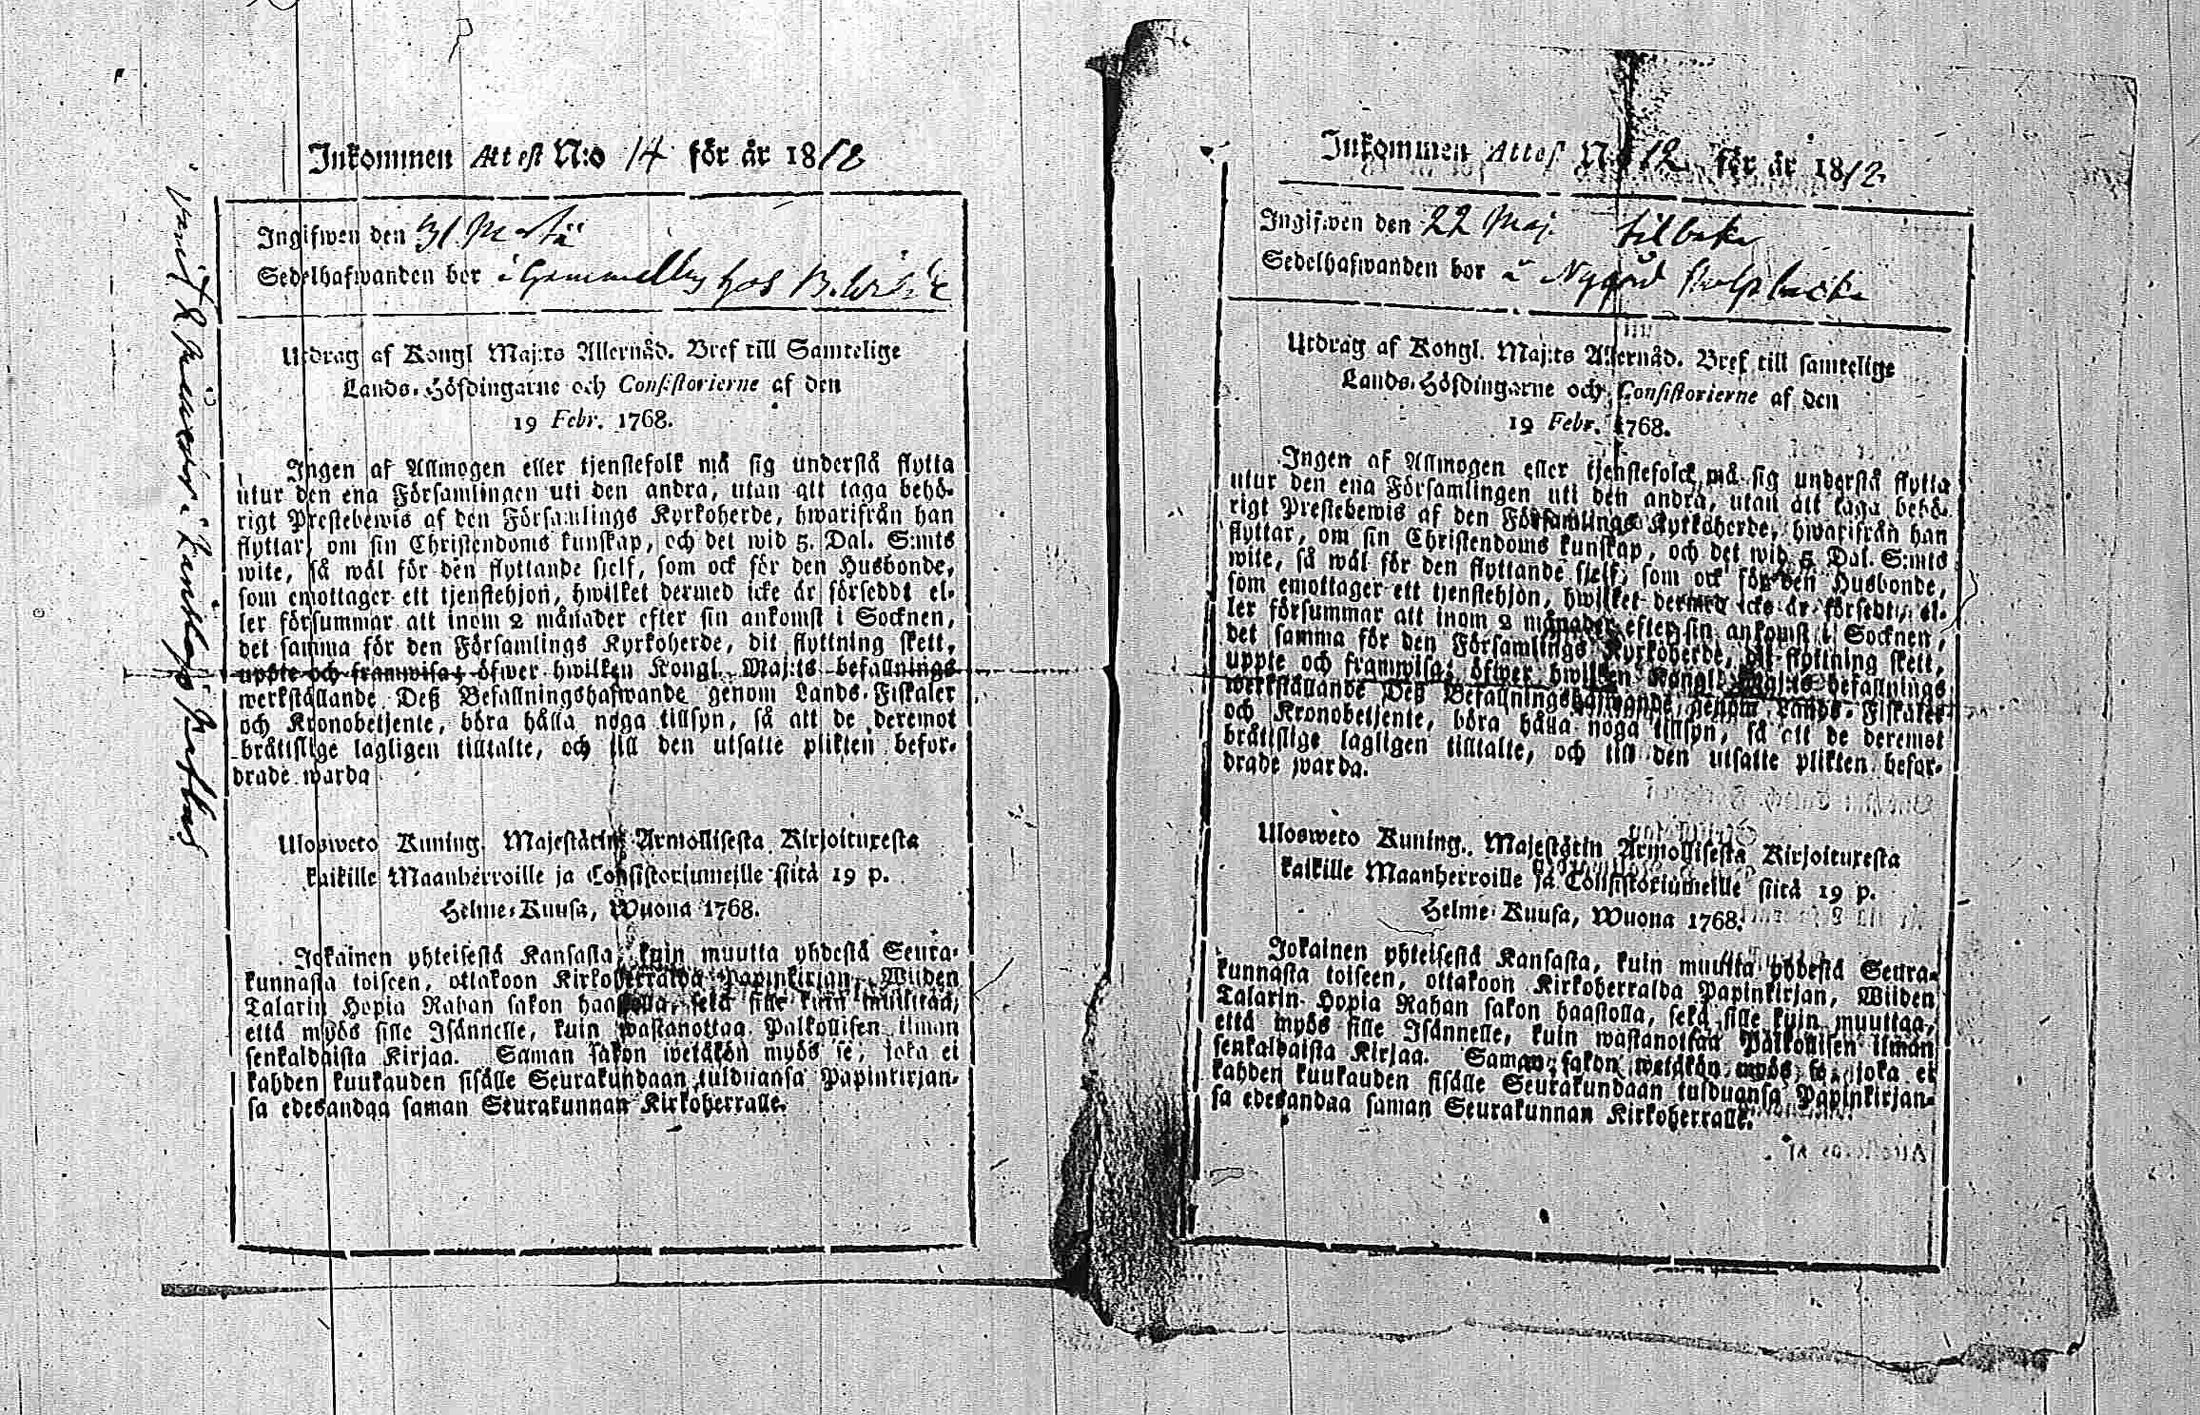 Inkommen Attest N:o 14 för år 1812
Ingifwen den 31 Martii
Sedelhafwanden bor å Gammelby hos
Utdrag af Kongl Maj:ts Allernåd. Bref till Samtelige
Lands-Höfdingarne och Consistorierne af den
19 Febr. 1768.
Ingen af Allmogen eller tjenstefolk må sig understå flytta
utur den ena Församlingen uti den andra, utan att taga behö-
rigt Prestebewis af den Församlings Kyrkoherde, hwarifrån han
flyttar, om sin Christendoms kunskap, och det wid 5. Dal. S:mts
wite, så wäl för den flyttande sjelf, som ock för den Husbonde,
som emottager ett tjenstehjon, hwilket dermed icke är förseddt el-
ler försummar att inom 2 månader efter sin ankomst i Socknen,
det samma för den Församlings Kyrkoherde, dit flyttning skett,
uppte och framwisa; öfwer hwilken Kongl. Maj:ts befallnings
werkställande Deß Befallningshafwande genom Lands-Fiskaler
och Kronobetjente, böra hålla noga tillsyn, så att de deremot
bråtislige lagligen tilltalte, och till den utsatte plikten befor-
drade warda
Ulosweto Kuning. Majestätin Armollisesta Kirjoituxesta
kaikille Maanherroille ja Consistoriumeille siitä 19 p.
Helme-Kuusa, Wuona 1768.
Jokainen yhteisestä Kansasta, kuin muutta yhdestä Seura-
kunnasta toiseen, ottakoon Kirkoherralda Papinkirjan, Wiiden
Talarin Hopia Rahan sakon haastolla, sekä sille kuin muuttaa,
että myös sille Isännelle, kuin wastanottaa Palkollisen ilman
senkaldaista Kirjaa. Saman sakon wetäkön myös se, joka ei
kahden kuukauden sisälle Seurakundaan tulduansa Papinkirjan-
sa edesandaa saman Seurakunnan Kirkoherralle.
Inkommen Attest N:o 12 för år 1812
Ingifwen den 22 Maj. tilbaka
Sedelhafwanden bor å Nygård
Utdrag af Kongl. Maj:ts Allernåd. Bref till samtelige
Lands-Höfdingarne och Consistorierne af den
19 Febr. 1768.
Ingen af Allmogen eller tjenstefolck må sig understå flytta
utur den ena Församlingen uti den andra, utan att taga behö-
rigt Prestebewis af den Församlings Kyrkoherde, hwarifrån han
flyttar, om sin Christendoms kunskap, och det wid 5 Dal. S:mts
wite, så wäl för den flyttande sjelf, som ock för den Husbonde,
som emottager ett tjenstehjon, hwilket dermed icke är försedt, el-
ler försummar att inom 2 månader efter sin ankomst i Socknen,
det samma för den Församlings Kyrkoherde, dit flyttning skett,
uppte och framwisa; öfwer hwilken Kongl. Maj:ts befallnings
werkställande Deß Befallningshafwande genom Lands-Fiskaler
och Kronobetjente, böra hålla noga tillsyn, så att de deremot
bråtislige lagligen tilltalte, och till den utsatte plikten befor-
drade warda.
Ulosweto Kuning. Majestätin Armollisesta Kirjoituxesta
kaikille Maanherroille ja Consistoriumeille siitä 19 p.
Helme-Kuusa, Wuona 1768.
Jokainen yhteisestä Kansasta, kuin muutta yhdestä Seura-
kunnasta toiseen, ottakoon Kirkoherralda Papinkirjan, Wiiden
Talarin Hopia Rahan sakon haastolla, sekä sille kuin muuttaa,
että myös sille Isännelle, kuin wastanottaa Palkollisen ilman
senkaldaista Kirjaa. Saman sakon wetäkön myös se, joka ei
kahden kuukauden sisälle Seurakundaan tulduansa Papinkirjan-
sa edesandaa saman Seurakunnan Kirkoherralle.